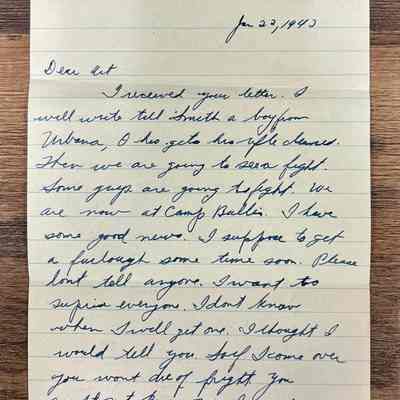 Jan 22, 1942
Dear Art
I received your letter. I
will write till Smith a boy from
Urbana, O has gets his rifle cleaned.
Then we are going to see a fight.
Some guys are going to fight. We
are now at Camp Bullis. I have
some good news. I suppose to get
a furlough some time soon. Please
dont tell anyone. I want to
suprise everyone. I dont know
when I will get one. I thought I
would tell you. So if I come over
you wont die of fright. You